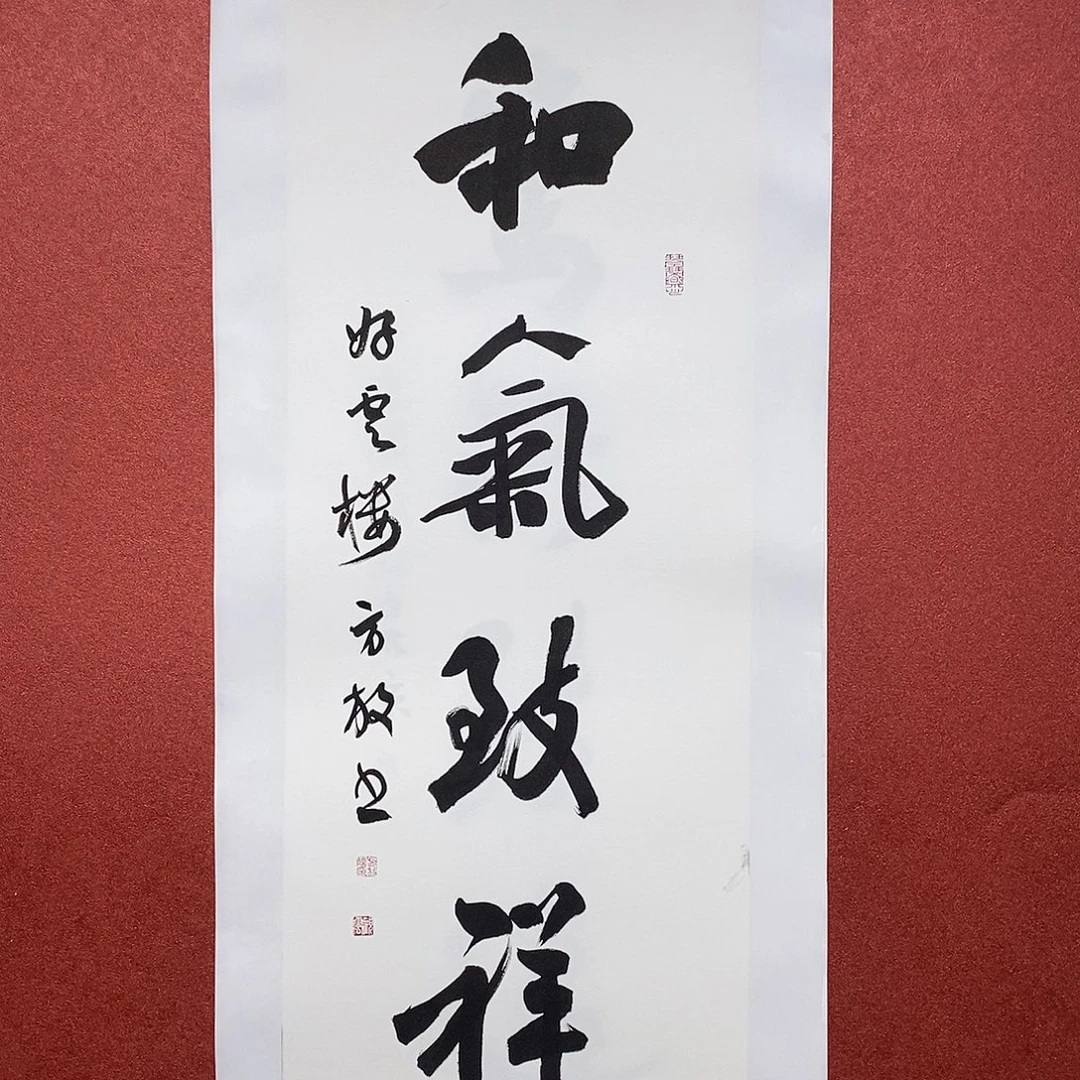 和氣致祥
好雲樓方放书